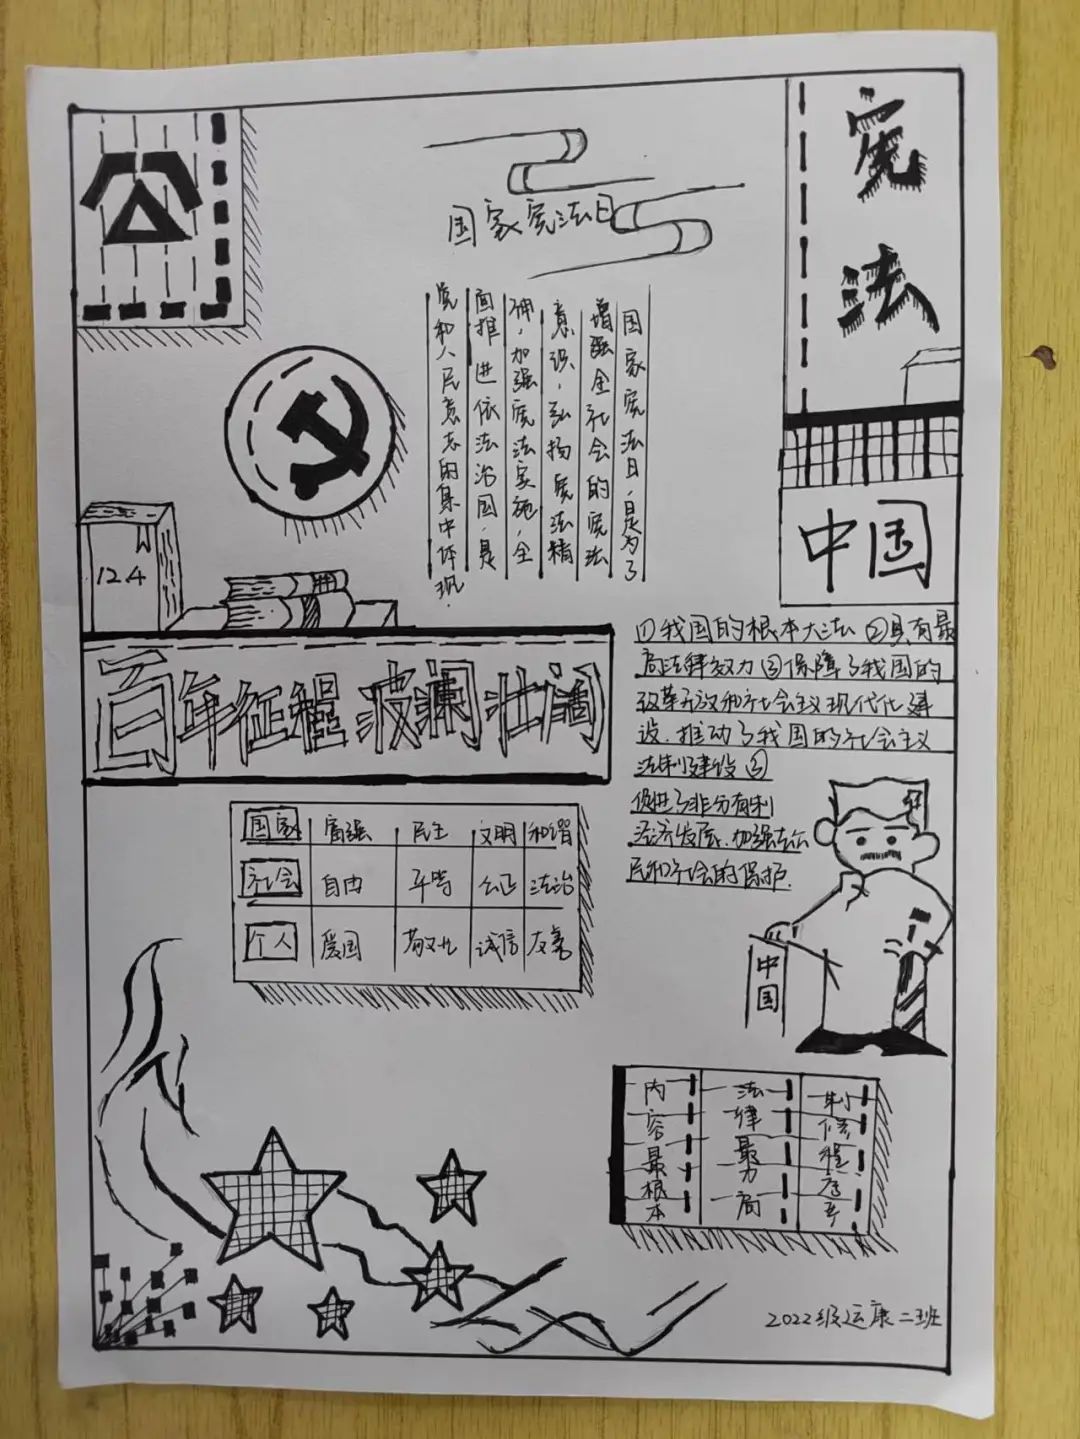 公
宪法
国家宪法日
国家宪法日,是为了
增强全社会的宪法
意识,弘扬宪法精
神,加强宪法实施,全
面推进依法治国,是
党和人民意志的集中体现.
中国
124
百年征程 波澜壮阔
①我国的根本大法②具有最
高法律效力③保障了我国的
改革开放和社会主义现代化建
设.推动了我国的社会主义
法制建设④
促进了非公有制
经济发展.加强
民和社会的保护.
国家 富强 民主 文明 和谐
社会 自由 平等 公正 法治
个人 爱国 敬业 诚信 友善
中国
内容最根本
法律最力高
制修程序
2022级运康二班